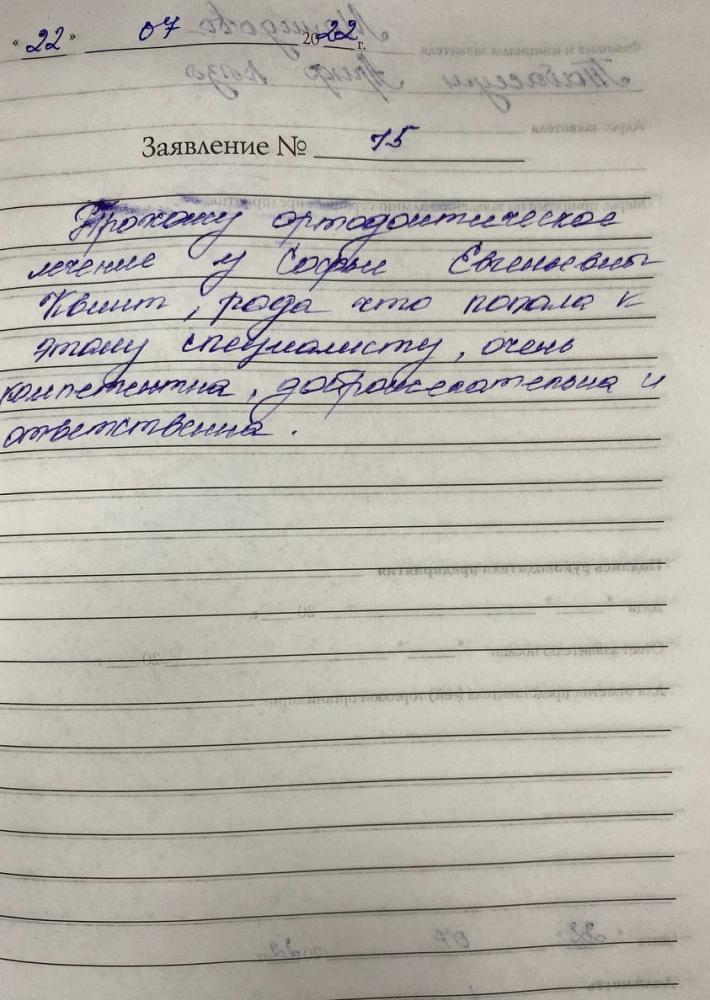 «22» 07 2022 г.
Заявление № 15
Прохожу ортодонтическое
лечение у Софьи Евгеньевны
Квинт, рада что попала к
этому специалисту, очень
компетентна, доброжелательна и
ответственна.